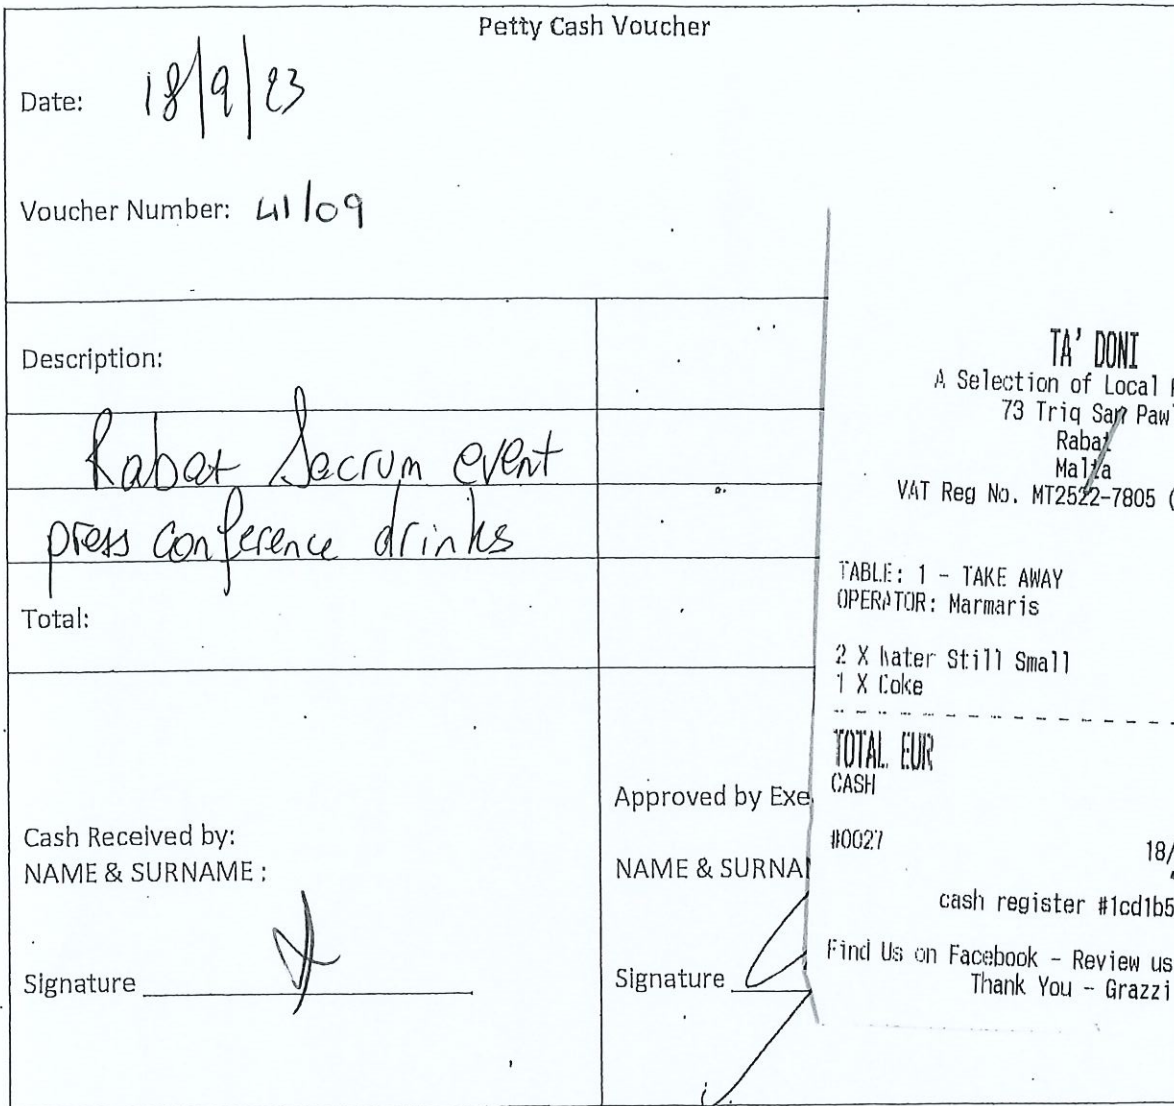 Petty Cash Voucher
Date: 18/9/23
Voucher Number: 41/09
Description:
Rabat Sacrum event
press conference drinks
Total:
Cash Received by:
NAME & SURNAME :
Signature
Approved by Exe
NAME & SURNA
Signature
TA' DONI
A Selection of Local
73 Triq San Paw
Rabat
Malta
VAT Reg No. MT2522-7805 (
TABLE: 1 - TAKE AWAY
OPERATOR: Marmaris
2 X Water Still Small
1 X Coke
TOTAL EUR
CASH
#0027
18/
cash register #1cd1b5
Find Us on Facebook - Review us
Thank You - Grazzi